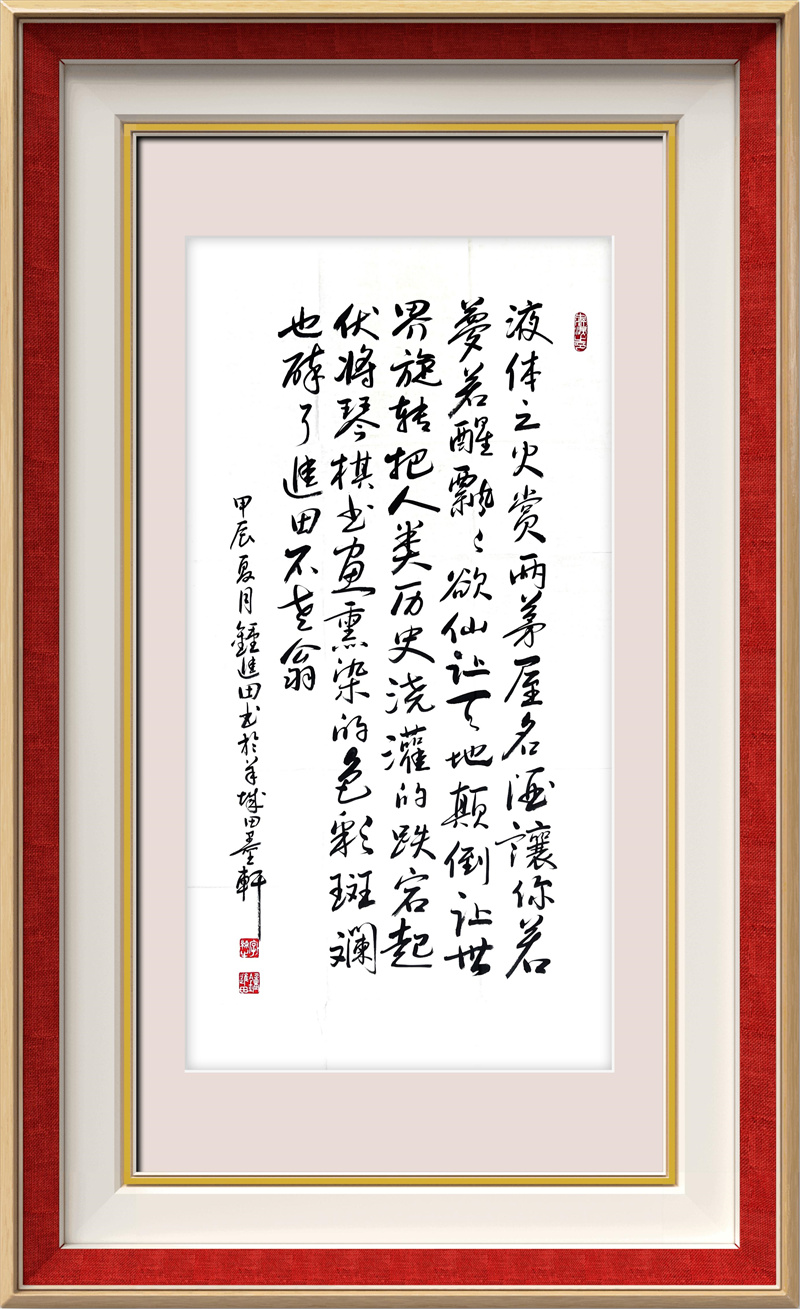 液体之火赏两茅屋名酒讓你若
夢若醒飘飘欲仙让天地颠倒让世
界旋转把人类历史浇灌的跌宕起
伏将琴棋书画熏染的色彩斑斓
也醉了進田不老翁
甲辰夏月鍾進田书於羊城田墨軒